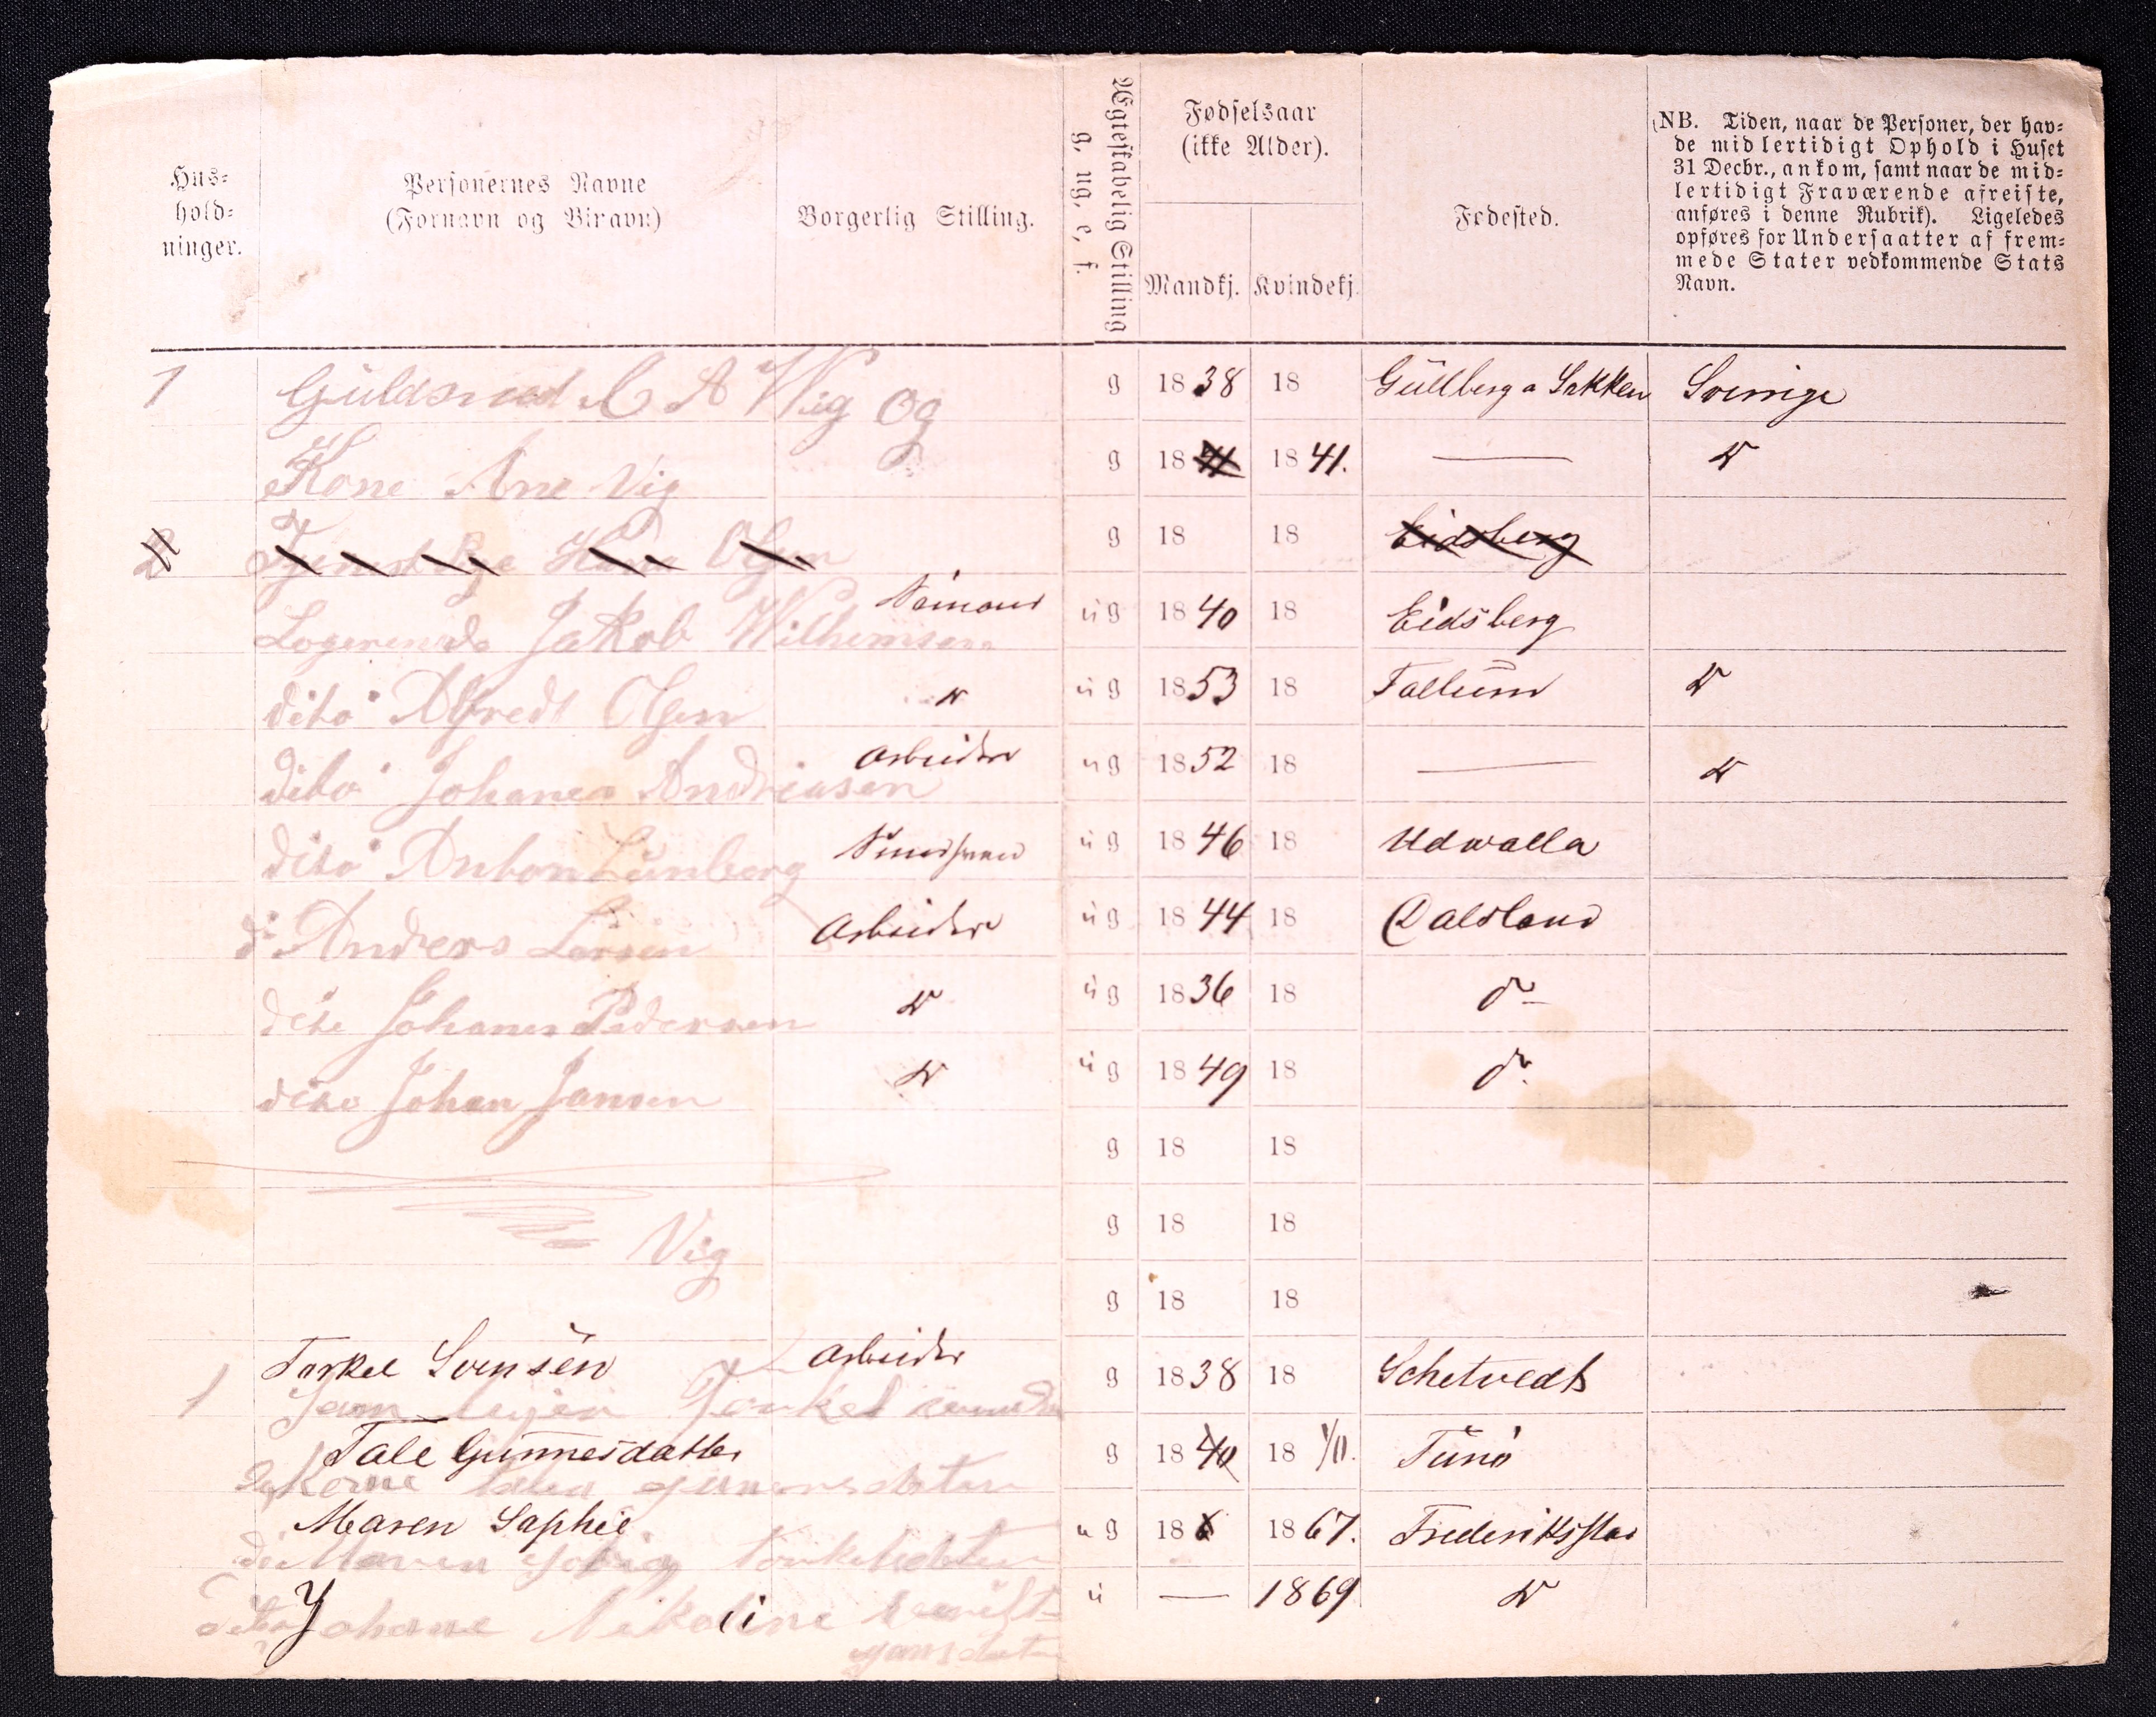 Hus-
hold-
ninger.
Personernes Navne
(Fornavn og Binavn)
Borgerlig Stilling.
Ægteskabelig Stilling
g, ug, e, f.
Fødselsaar
(ikke Alder).
Mandkj. Kvindekj.
Fødested.
(NB. Tiden, naar de Personer, der hav-
de midlertidigt Ophold i Huset
31 Decbr., ankom, samt naar de mid-
lertidigt Fraværende afreiste,
anføres i denne Rubrik). Ligeledes
opføres for Undersaatter af frem-
mede Stater vedkommende Stats
Navn.
1 Guldsmed C A Wig og g 1838 18 Güllberg a Sverrige
Kone Ane Vig g 18 1841. — do
Olsen g 18 18 Eidsberg
Logerende Jakob Wilhemsen Sömand ug 1840 18 Eidsberg
dito Alfredt Olsen do ug 1853 18 do
dito Johanes Andreasen Arbeider ug 1852 18 — do
dito Anton Lünberg ug 1846 18 Udwalla
do Anders Larsen Arbeider ug 1844 18 Dalsland
dito Johanes Pedersen do ug 1836 18 do
dito Johan Jansen do ug 1849 18 do
g 18 18
g 18 18
Vig
g 18 18
Torkel Svensen Arbeider g 1838 18 Schetvedt
1
Tale Gunnersdatter g 1840 18 40. Tünö
og kone
Maren Sophie ug 186 1867. Frederiksstad
dito Maren
dito Johanne Nikoline u — 1869 do